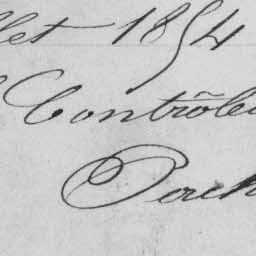 llet 1854
Contrôleu